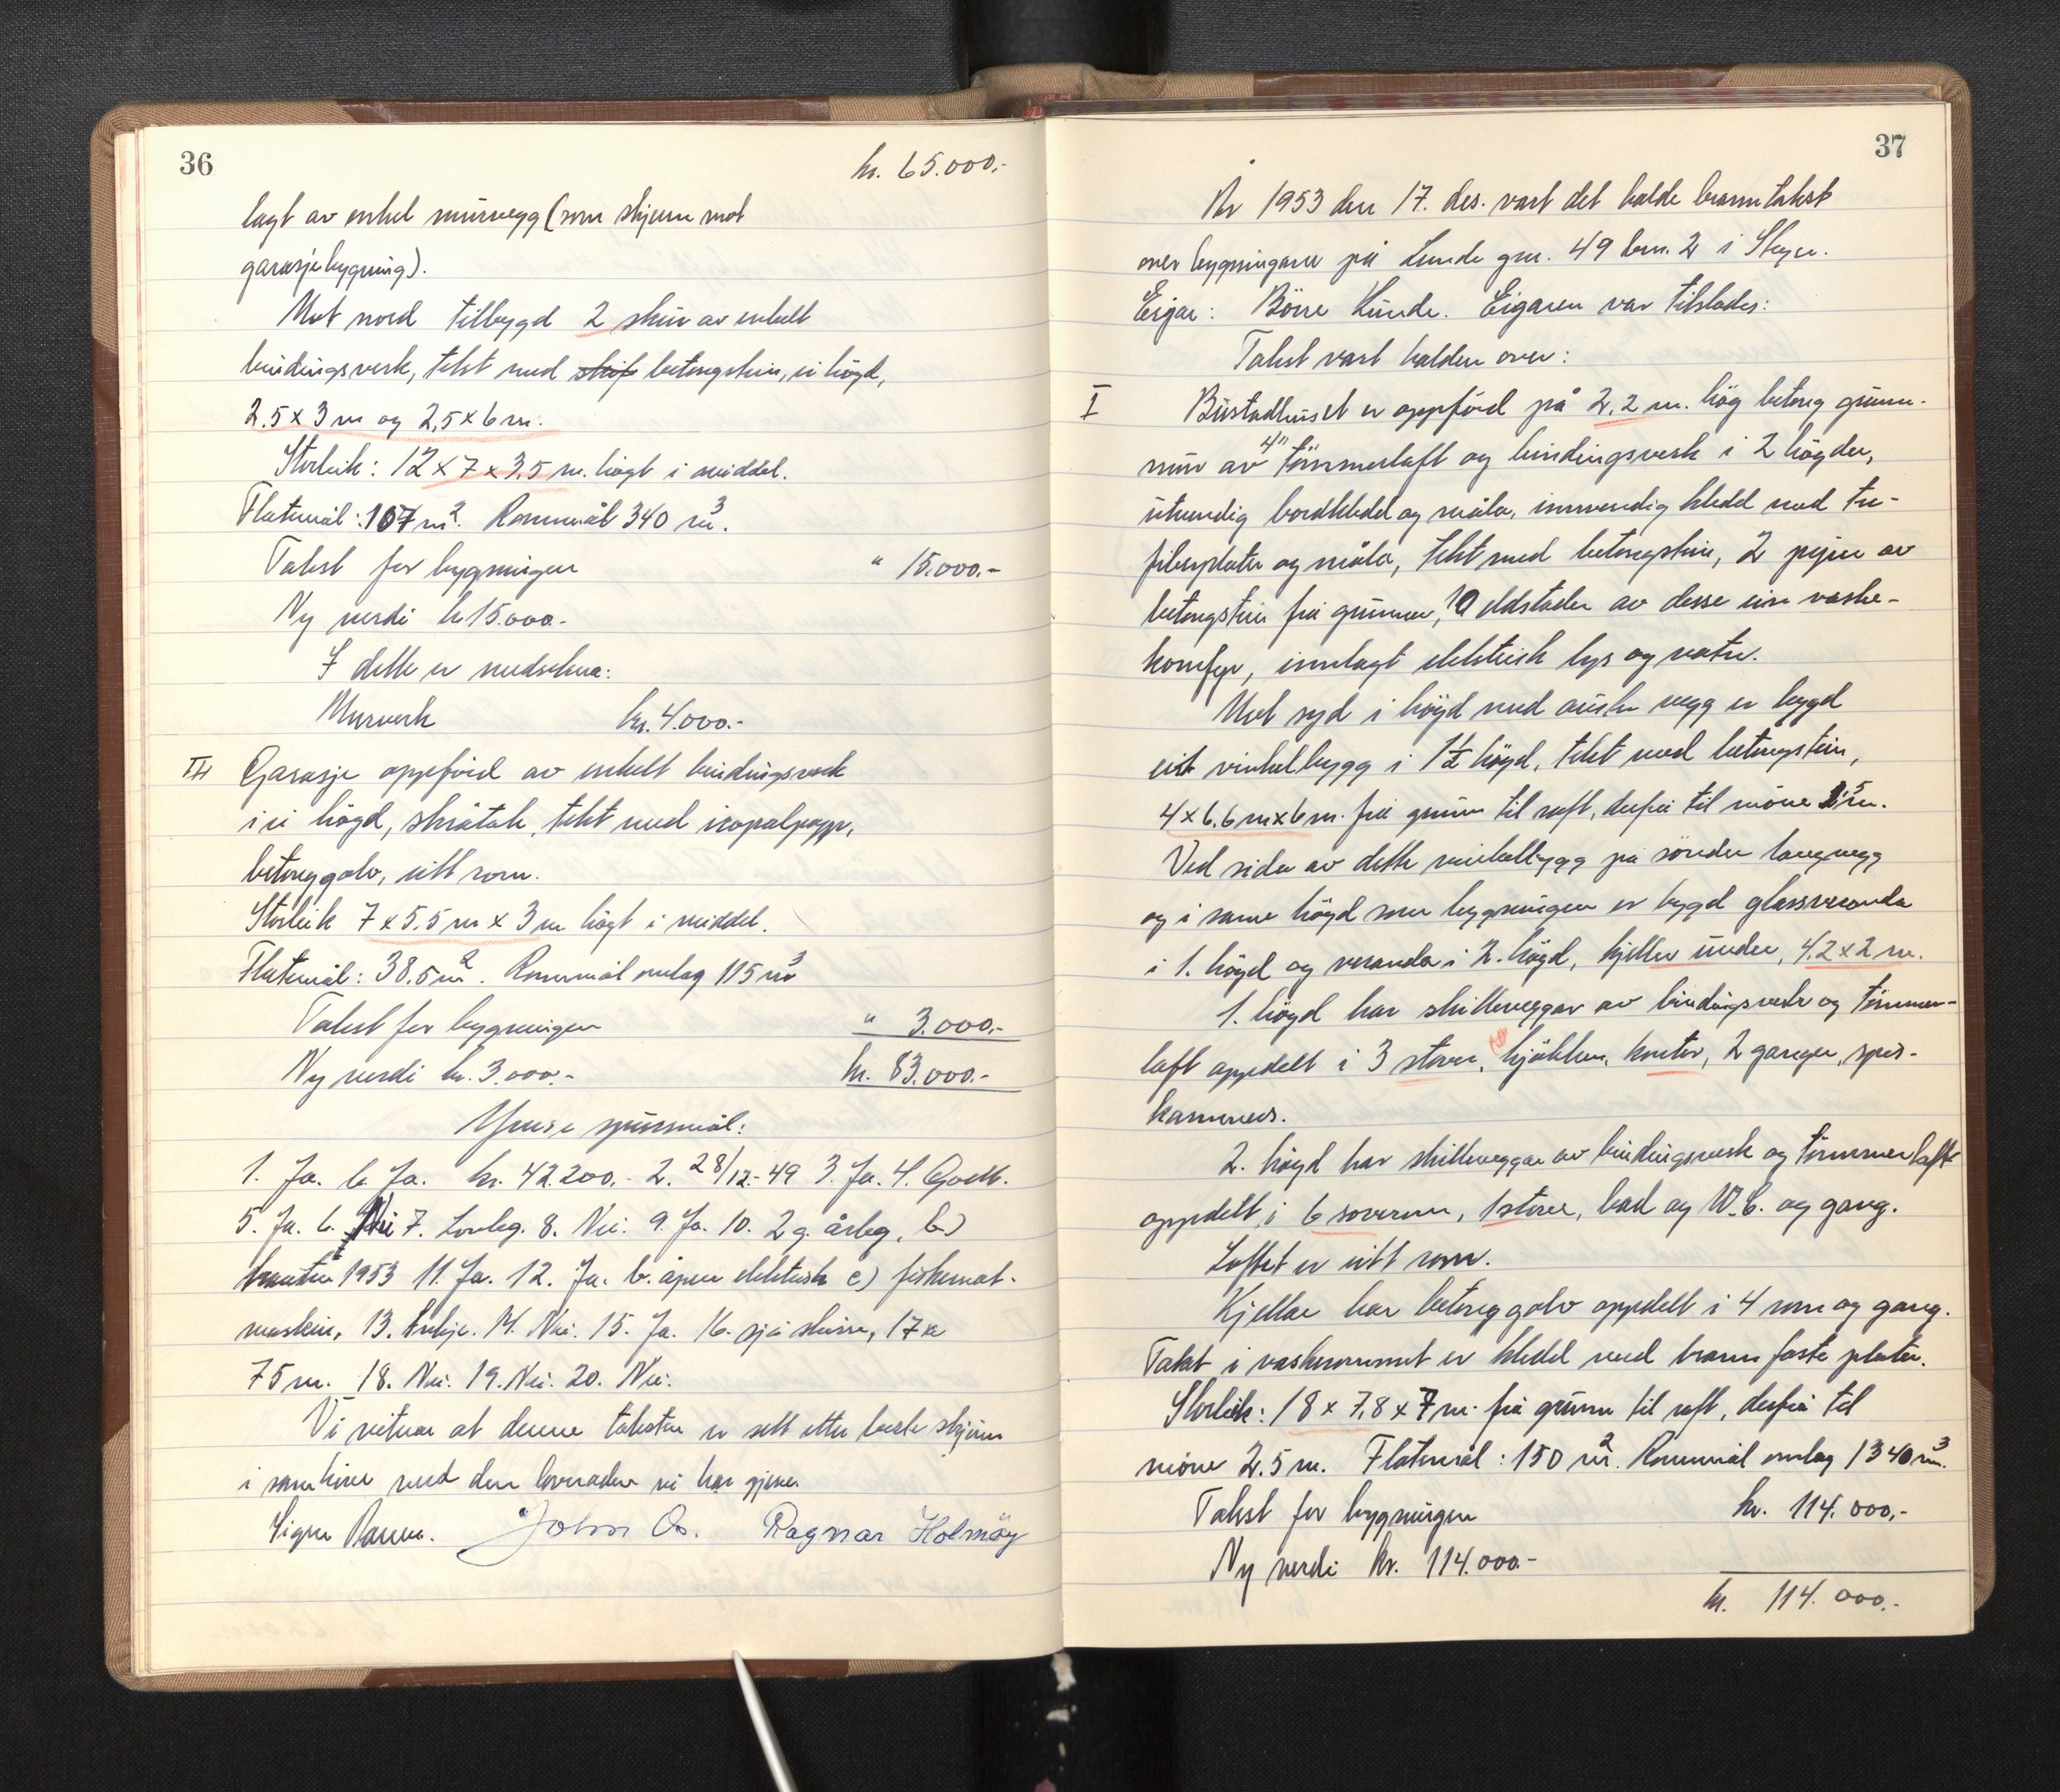 36
kr. 65.000.-
lagt av enkel murvegg (som skjerm mot
garasjebygning).
Mot nord tilbygd 2 skur av enkelt
bindingsverk, tekt med skif betongstein, ei högd,
2.5 x 3 m og 2,5 x 6 m.
Storleik: 12 x 7 x 3,5 m. högt i middel.
Flatemål: 107 m². Rommål 340 m³.
Takst for bygningen " 15.000.-
Ny verdi kr 15.000.-
I dette er medrekna:
Murverk kr. 4.000.-
III Garasje oppförd av enkelt bindingsverk
i ei högd, skråtak, tekt med isopalpapp,
betonggolv, eitt rom.
Storleik 7 x 5.5 m x 3 m högt i middel.
Flatemål: 38.5 m². Rommål omlag 115 m³
Takst for bygningen " 3.000.-
Ny verdi kr. 3.000.- kr. 83.000.-
Ymse spursmål:
1. Ja. b. Ja. kr. 42.200.- 2. 28/12.-49 3. Ja. 4. Godt.
5. Ja. 6. Nei 7. Lovleg. 8. Nei. 9. Ja. 10. 2 g. årleg, b)
hausten 1953 11. Ja. 12. Ja. b. open elektrisk c) fiskemat-
maskin, 13. 14. Nei. 15. Ja. 16. sjå skisse, 17 a
75 m. 18. Nei. 19. Nei. 20. Nei.
Vi vitnar at denne taksten er sett etter beste skjönn
i samhöve med den lovnaden vi har gjeve.
John O. Ragnar Holmöy
37
År 1953 den 17. des. vart det halde branntakst
over bygningane på Lunde gnr. 49 bnr. 2 i Stryn.
Eigar: Börre Lunde. Eigaren var tilstades:
Takst vart halden over:
I Bustadhuset er oppförd på 2,2 m. hög betong grunn-
mur av 4" tömmerlaft og bindingsverk i 2 högder,
utvendig bordkledd og måla, innvendig kledd med tre-
fiberplater og måla, tekt med betongstein, 2 piper av
betongstein frå grunnen, 10 eldstader av desse ein vaske-
komfyr, innlagt elektrisk lys og vatn.
Mot syd i högd med austre vegg er bygd
eit vinkelbygg i 1½ högd, tekt med betongstein,
4 x 6.6 m x 6 m. frå grunn til raft, derfrå til möne m.
Ved sida av dette vinkelbygg på söndre langvegg
og i same högd som bygningen er bygd glassveranda
i 1. högd og veranda i 2. högd, kjeller under, 4.2 x 2 m.
1. högd har skilleveggar av bindingsverk og tömmer-
laft oppdelt i 3 stover, kjökken, kontor, 2 ganger, spis-
kammers.
2. högd har skilleveggar av bindingsverk og tömmerlaft
oppdelt i 6 soverom, 1 stove, bad og W.C. og gang.
Loftet er eitt rom.
Kjellar har betonggolv oppdelt i 4 rom og gang.
Taket i vaskerommet er kledd med brannfaste plater.
Storleik: 18 x 7,8 x 7 m. frå grunn til raft, derfrå til
möne 2.5 m. Flatemål: 150 m². Rommål omlag 1340 m³.
Takst for bygningen kr. 114.000,-
Ny verdi kr. 114.000.-
kr. 114.000.-